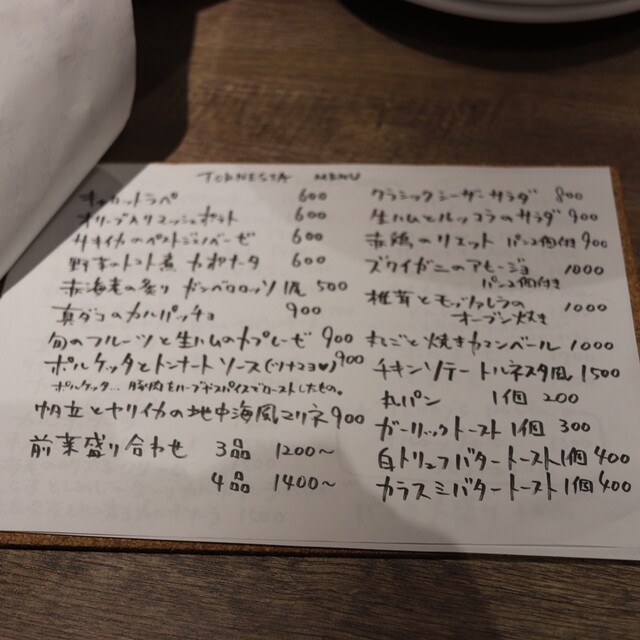 TORNESTA MENU
キャロットラペ 600
オリーブ入りマッシュポテト 600
ヤリイカのペストジェノベーゼ 600
野菜のトマト煮 カポナータ 600
赤海老の炙り ガンベロロッソ 1尾 500
真ダコのカルパッチョ 900
旬のフルーツと生ハムのカプレーゼ 900
ポルケッタとトンナートソース(ツナマヨ♡) 900
ポルケッタ… 豚肉をハーブやスパイスでローストしたもの。
帆立とヤリイカの地中海風マリネ 900
前菜盛り合わせ 3品 1200〜
4品 1400〜
クラシックシーザーサラダ 800
生ハムとルッコラのサラダ 900
赤鶏のリエット パン2個付 900
ズワイガニのアヒージョ 1000
パン2個付き
椎茸とモッツァレラの
オーブン焼き 1000
丸ごと焼きカマンベール 1000
チキンソテー トルネスタ風 1500
丸パン 1個 200
ガーリックトースト 1個 300
白トリュフバタートースト 1個 400
カラスミバタートースト 1個 400